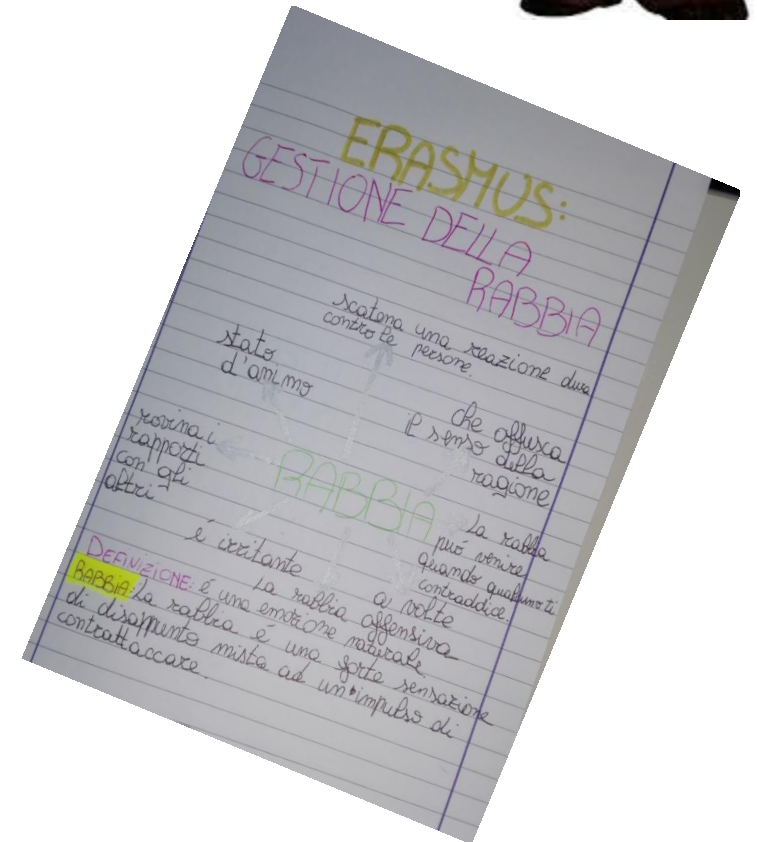 ERASMUS:
GESTIONE DELLA
RABBIA
scatena una reazione dura
contro le persone.
stato
d'animo
che offusca
il senso della
ragione
rovina i
rapporti
con gli
altri
RABBIA
La rabbia
può venire
quando qualcuno ti
contraddice.
é irritante
a volte
offensiva
La rabbia
é una emozione naturale.
DEFINIZIONE:
RABBIA: La rabbia é una forte sensazione
di disappunto mista ad un'impulso di
contrattaccare.